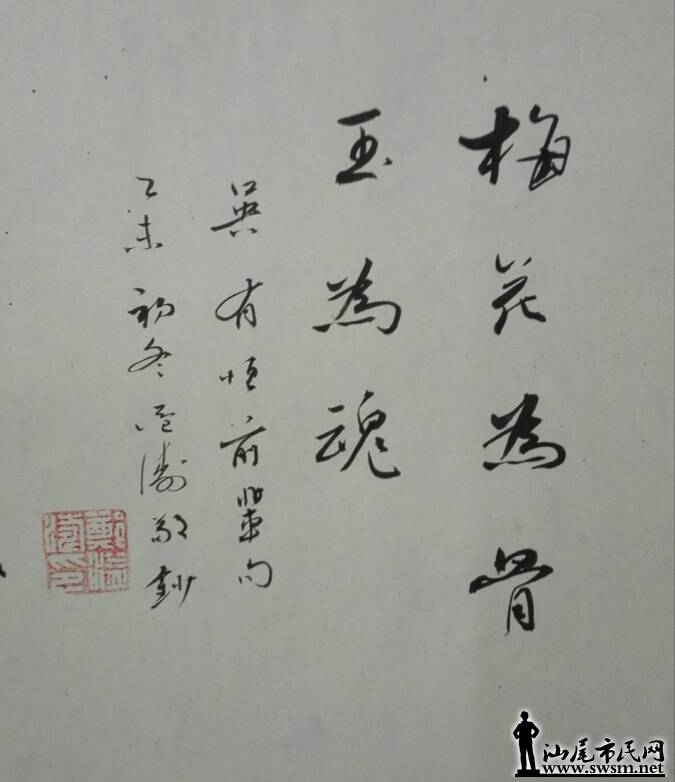 梅花為骨
玉為魂
吳有恒前輩句
乙未初冬 敬鈔
汕尾市民网
www.swsm.net